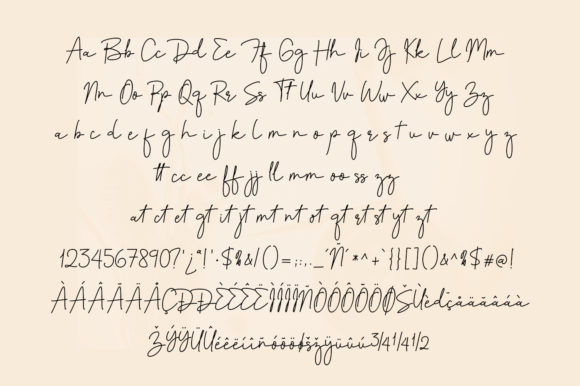 Aa Bb Cc Dd Ee Ff Gg Hh Ii Jj Kk Ll Mm
Nn Oo Pp Qq Rr Ss Tt Uu Vv Ww Xx Yy Zz
a b c d e f g h i j k l m n o p q r s t u v w x y z
tt cc ee ff jj ll mm oo ss zz
at ct et gt it jt mt nt ot qt rt st yt zt
1234567890?'¿ª!'·$%&/()=;:,._¨Ñ¨*^+`{}[]()&^%$#@!
ÀÁÂÃÄÅÇDÐÈÉÊËÌÍÎÏÑÒÓÔÕÖØŠÙèdçåäãâáà
ŽÝŸÜÛéêëíîñóôõöøšžÿüûú3/41/41/2